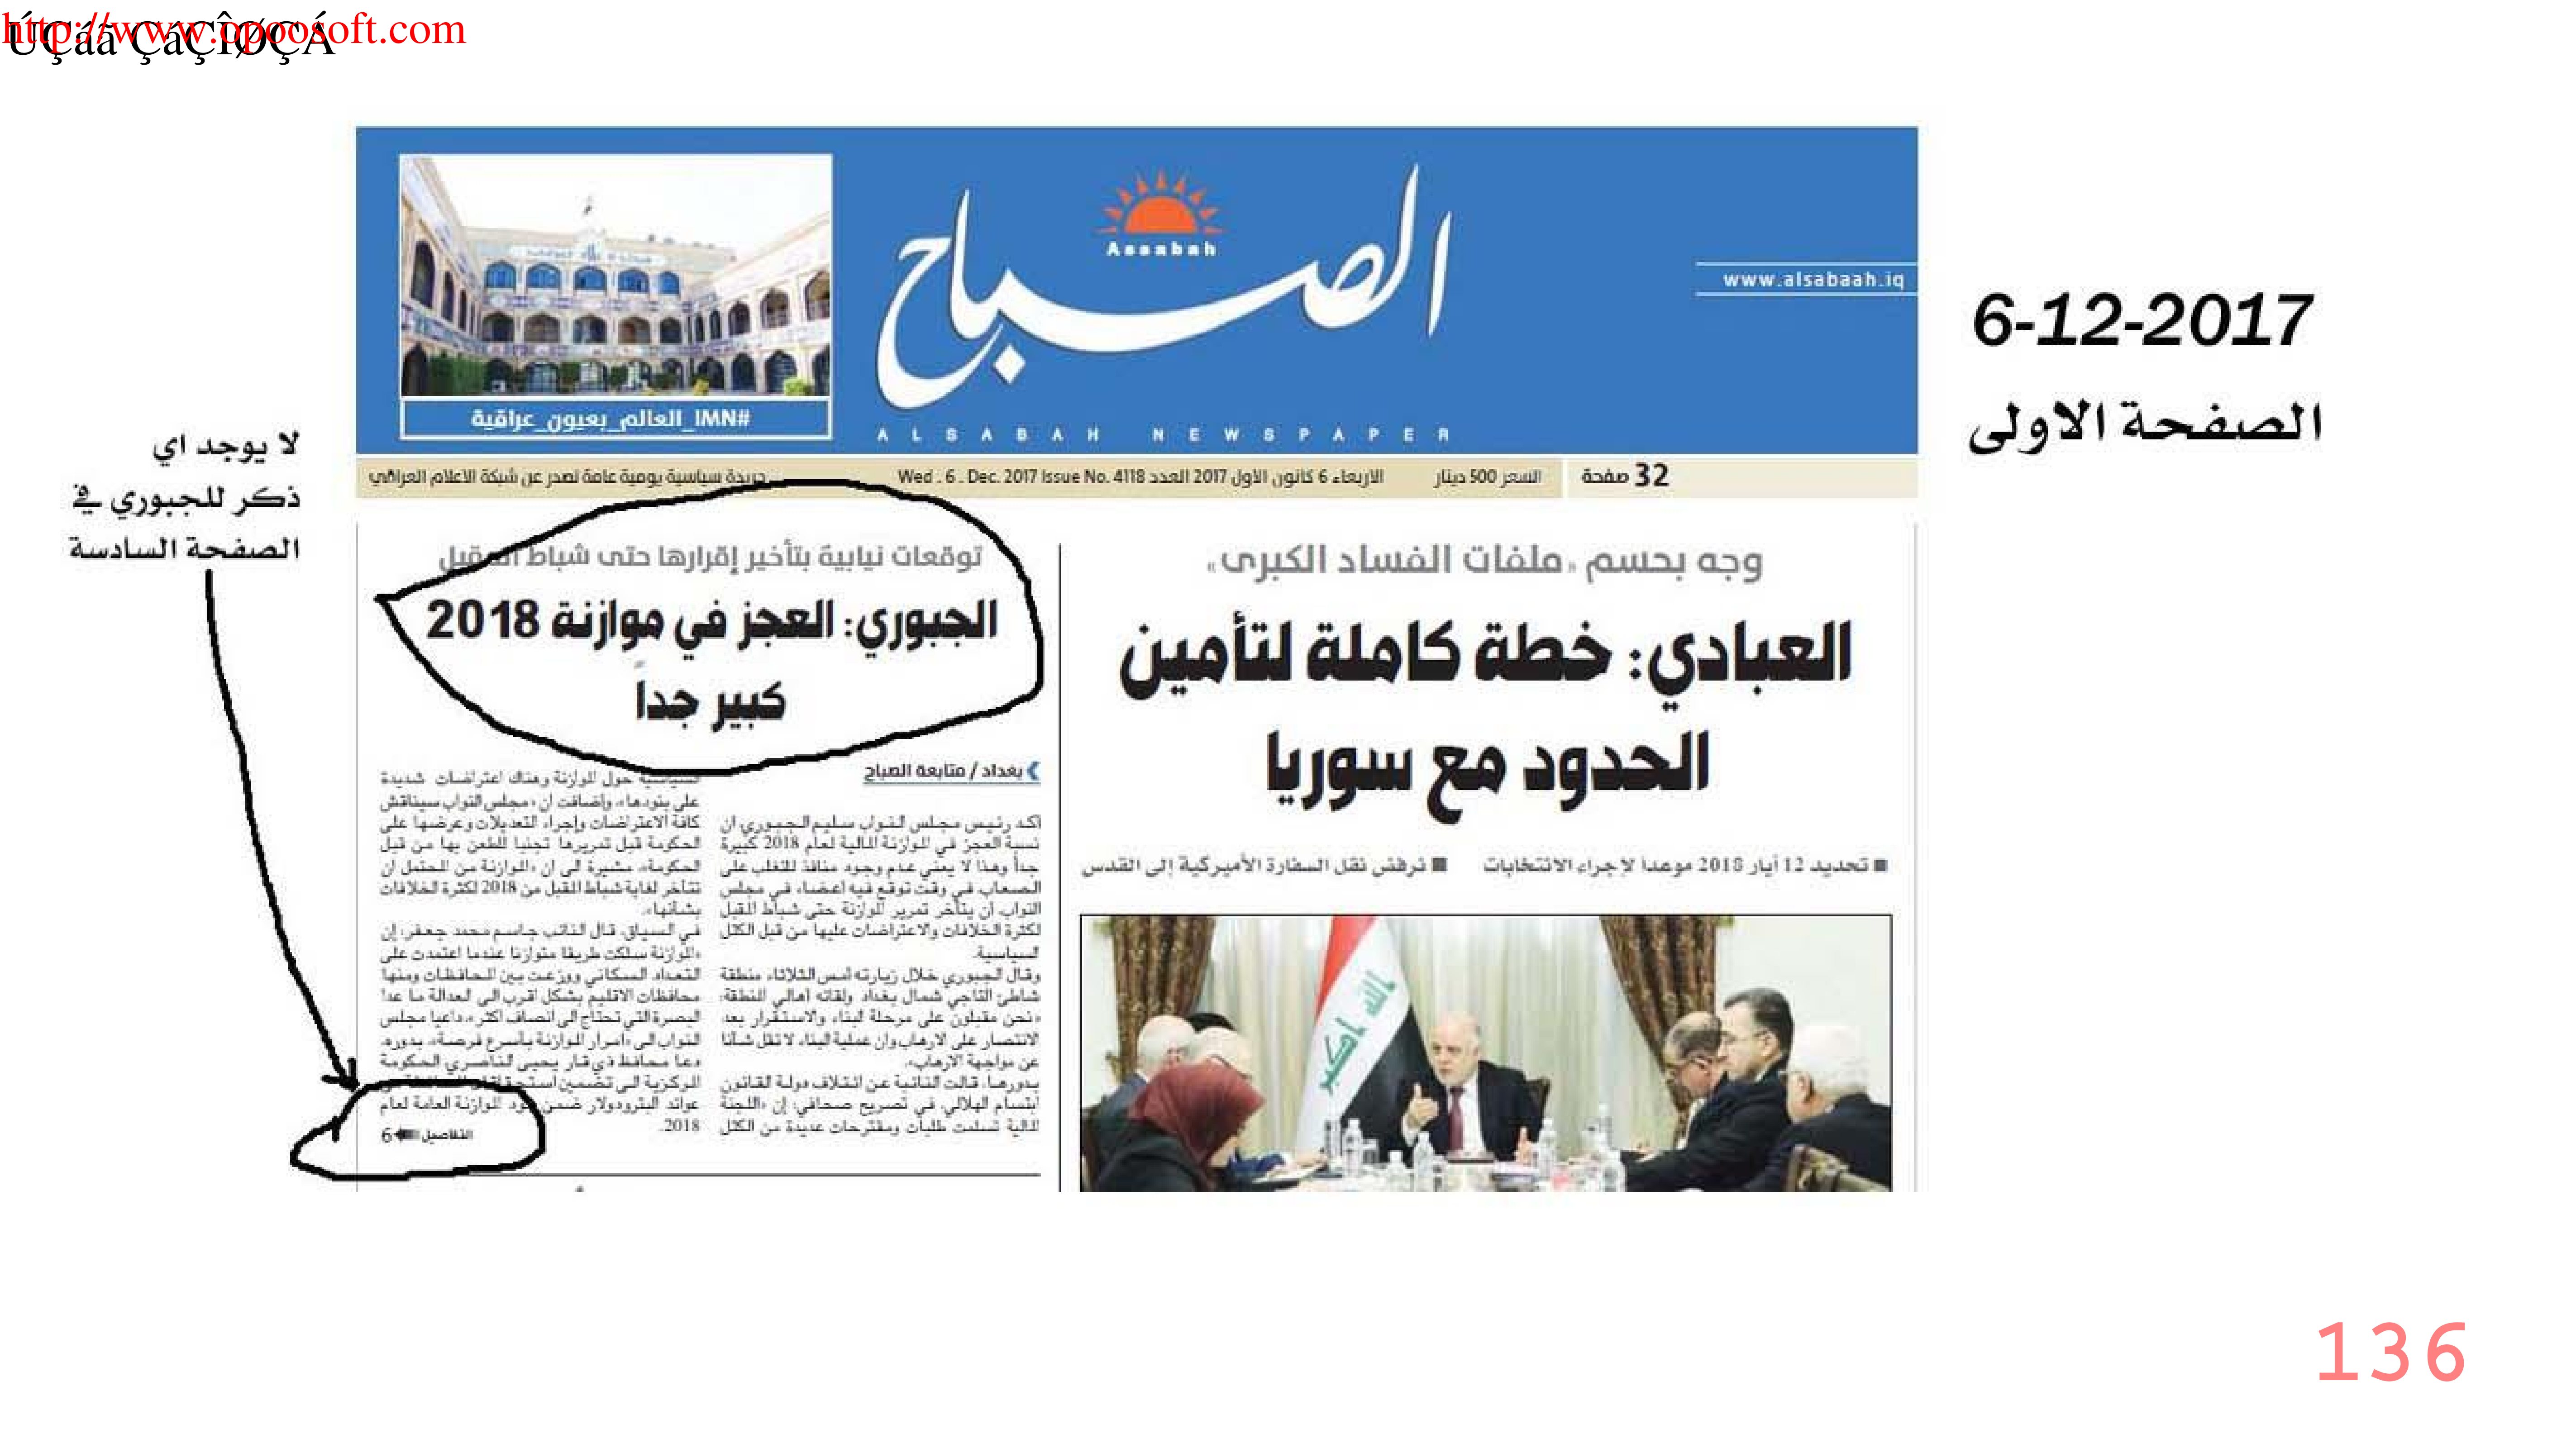 http://www.opoosoft.com
ÚÇáã ÇáÇÎØÇÁ
الصباح
Assabah
www.alsabaah.iq
ALSABAH NEWSPAPER
#IMN_العالم_بعيون_عراقية
6-12-2017
الصفحة الاولى
32 صفحة
السعر 500 دينار
الاربعاء 6 كانون الاول 2017 العدد 4118 Wed . 6 . Dec. 2017 Issue No.
جريدة سياسية يومية عامة تصدر عن شبكة الاعلام العراقي
لا يوجد اي
ذكر للجبوري في
الصفحة السادسة
وجه بحسم «ملفات الفساد الكبرى»
العبادي: خطة كاملة لتأمين
الحدود مع سوريا
■ تحديد 12 أيار 2018 موعدا لإجراء الانتخابات
■ نرفض نقل السفارة الأميركية إلى القدس
الله اكبر
توقعات نيابية بتأخير إقرارها حتى شباط المقبل
الجبوري: العجز في موازنة 2018
كبير جداً
بغداد / متابعة الصباح
اكد رئيس مجلس النواب سليم الجبوري ان
نسبة العجز في الموازنة المالية لعام 2018 كبيرة
جداً وهذا لا يعني عدم وجود منافذ للتغلب على
الصعاب، في وقت توقع فيه اعضاء في مجلس
النواب ان يتأخر تمرير الموازنة حتى شباط المقبل
لكثرة الخلافات والاعتراضات عليها من قبل الكتل
السياسية.
وقال الجبوري خلال زيارته امس الثلاثاء منطقة
شاطئ التاجي شمال بغداد ولقائه اهالي المنطقة:
«نحن مقبلون على مرحلة البناء والاستقرار بعد
الانتصار على الارهاب وان عملية البناء لا تقل شأنا
عن مواجهة الارهاب».
بدورها، قالت النائبة عن ائتلاف دولة القانون
ابتسام الهلالي، في تصريح صحافي: إن «اللجنة
المالية تسلمت طلبات ومقترحات عديدة من الكتل
السياسية حول الموازنة وهناك اعتراضات شديدة
على بنودها»، واضافت ان «مجلس النواب سيناقش
كافة الاعتراضات وإجراء التعديلات وعرضها على
الحكومة قبل تمريرها تجنبا للطعن بها من قبل
الحكومة»، مشيرة الى ان «الموازنة من المحتمل ان
تتأخر لغاية شباط المقبل من 2018 لكثرة الخلافات
بشأنها».
في السياق، قال النائب جاسم محمد جعفر: إن
«الموازنة سلكت طريقا متوازنا عندما اعتمدت على
التعداد السكاني ووزعت بين المحافظات ومنها
محافظات الاقليم بشكل اقرب الى العدالة ما عدا
البصرة التي تحتاج الى انصاف اكثر»، داعيا مجلس
النواب الى «امرار الموازنة بأسرع فرصة». بدوره،
دعا محافظ ذي قار يحيى الناصري الحكومة
المركزية الى تضمين
عوائد البترودولار ضمن الموازنة العامة لعام
2018.
التفاصيل 6
136